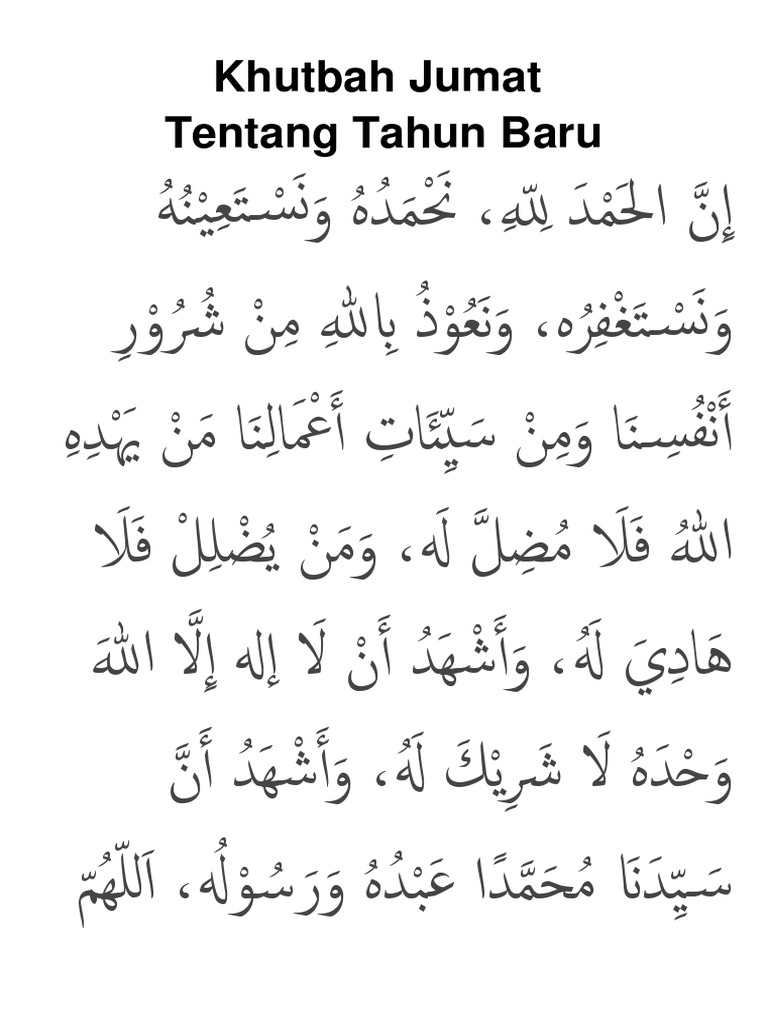 Khutbah Jumat
Tentang Tahun Baru
إِنَّ الحَمْدَ لِلّهِ، نَحْمَدُهُ وَنَسْتَعِيْنُهُ
وَنَسْتَغْفِرُه، وَنَعُوْذُ بِاللهِ مِنْ شُرُوْرِ
أَنْفُسِنَا وَمِنْ سَيِّئَاتِ أَعْمَالِنَا مَنْ يَهْدِهِ
اللهُ فَلَا مُضِلَّ لَه، وَمَنْ يُضْلِلْ فَلَا
هَادِيَ لَهُ، وَأَشْهَدُ أَنْ لَا إله إِلَّا اللهَ
وَحْدَهُ لَا شَرِيْكَ لَهُ، وَأَشْهَدُ أَنَّ
سَيِّدَنَا مُحَمَّدًا عَبْدُهُ وَرَسُوْلُه، اَللّهُمّ